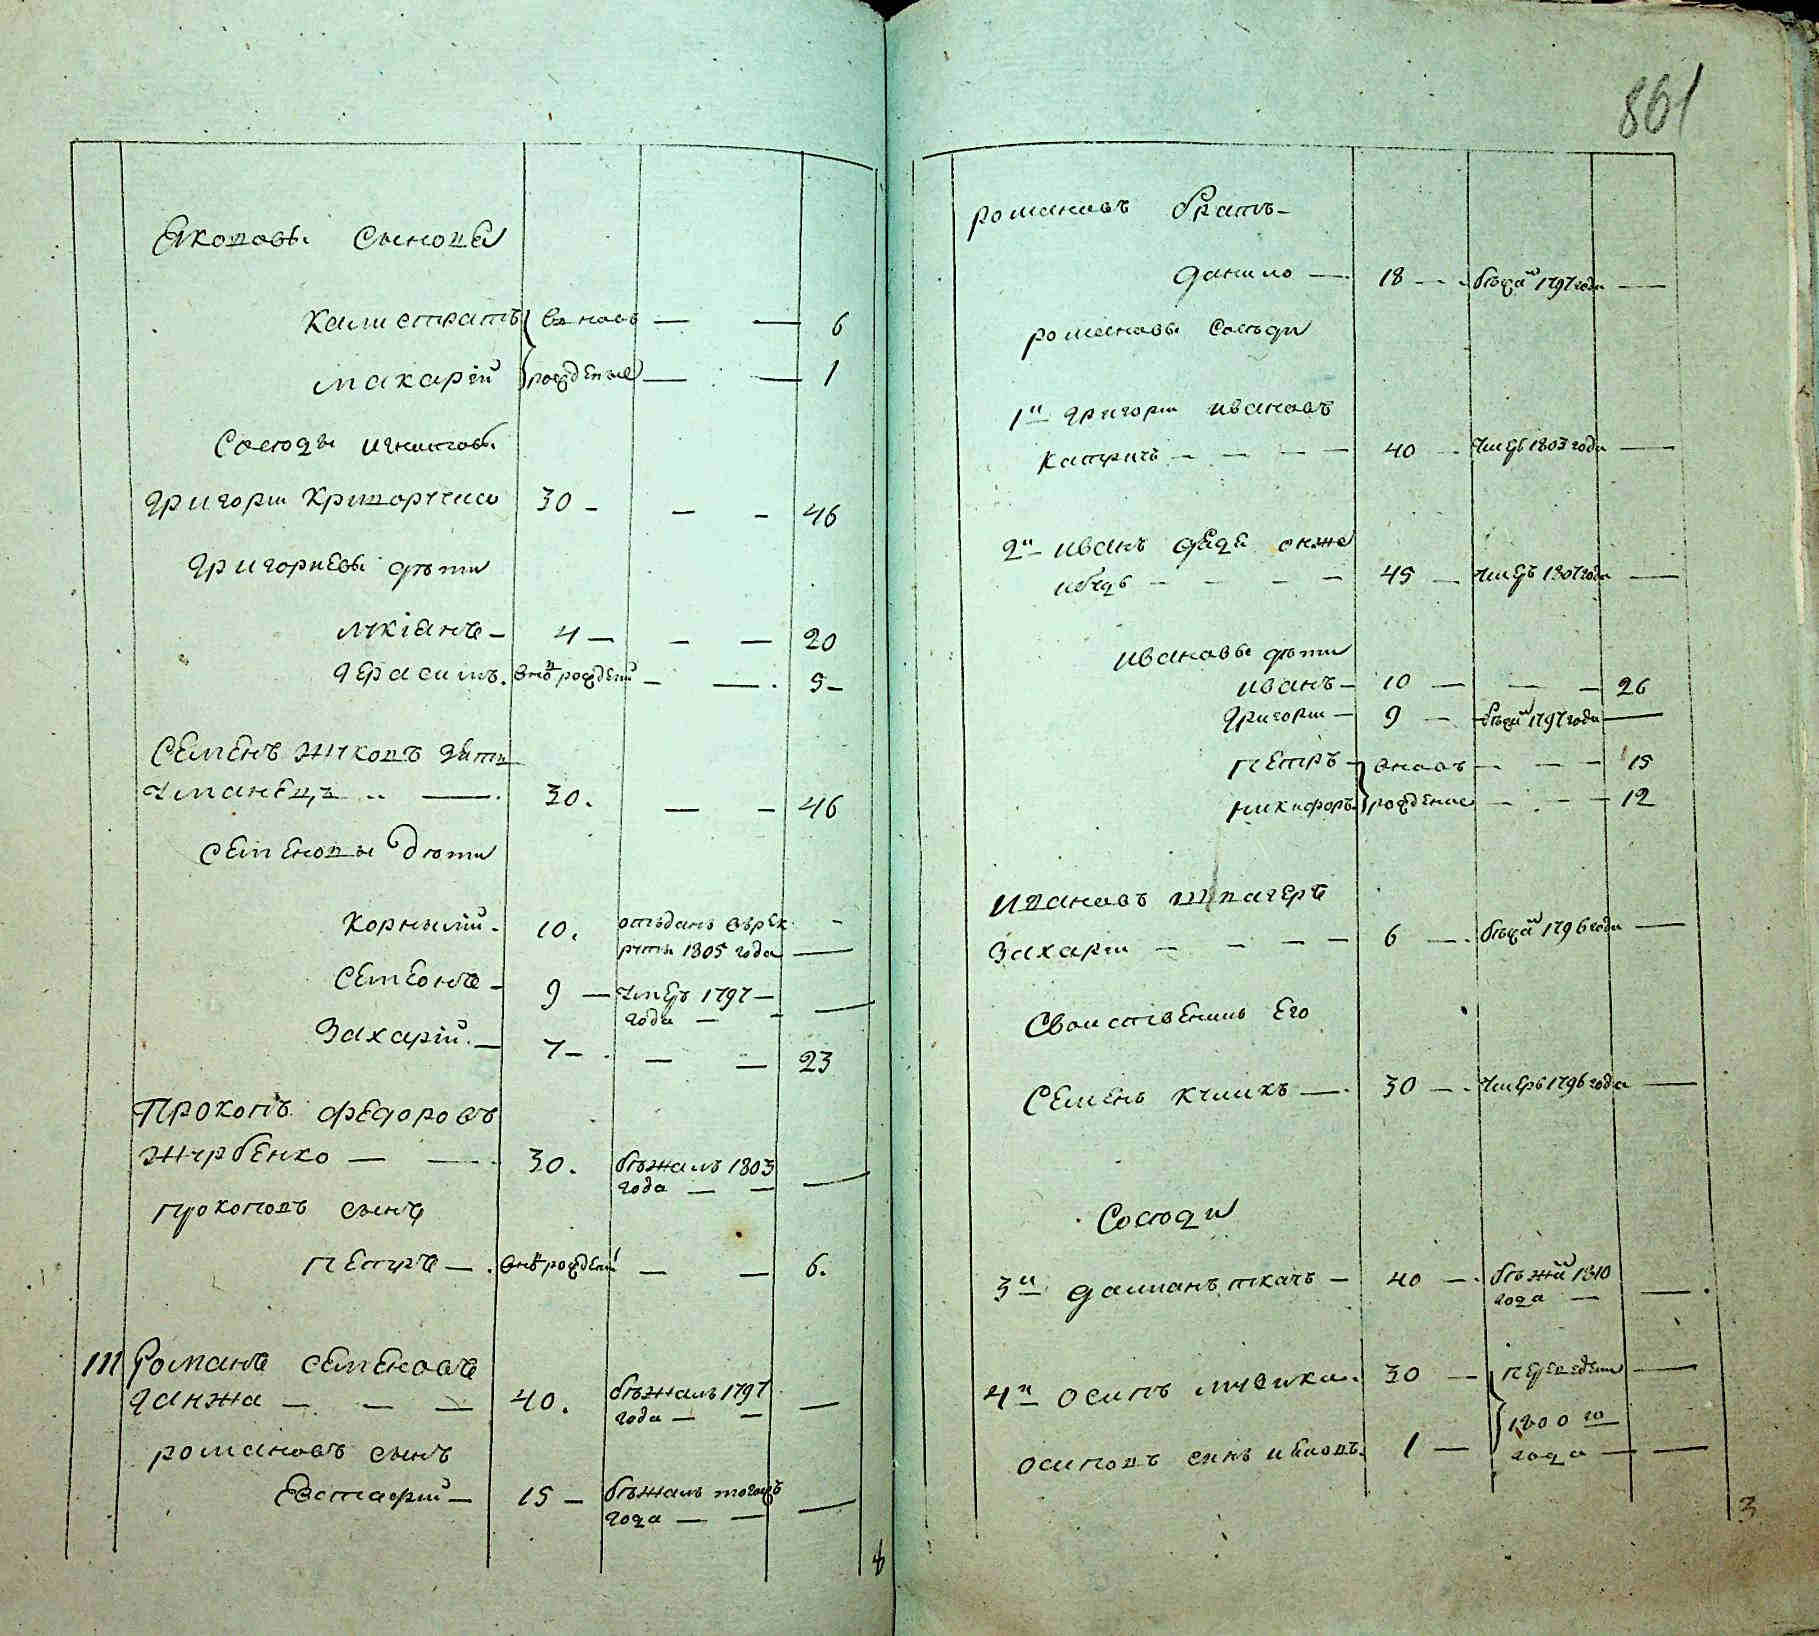 861
Яковы сыновя
Калистратъ вновь — — 6
Макарій рожденые — — 1
Соседы игнатовы
Григори Криворучко 30 — — — 46
Григориевы дѣти
Лукіянъ — 4 — — — 20
Герасимъ внѣ рожденъ — — 5 —
Семенъ Жуковъ зять
уманецъ — 30. — — 46
Семеновы дѣти
Корнылій — 10. отъданъ въ рек
руты 1805 года —
Семеонъ — 9 — умеръ 1797 —
года — — —
Захарій. — 7 — — — 23
Прокопъ Федоровъ
Журбенко — — 30. бѣжалъ 1803
года — — —
Прокоповъ сынъ
Петръ — внѣ рожденъ — — 6.
111 Романъ Семеновъ
Ганжа — — — 40. бѣжалъ 1797
года — — —
Романовъ сынъ
Евстафий — 15 — бѣжалъ тогожъ
года — — —
Романовъ братъ —
Данило — 18 — бѣжал 1797 года —
Романовы соседи
1й Григори Ивановъ
— — — 40 — умеръ 1803 года —
2й Иванъ онже
— — — 45 — умеръ 1807 года —
Ивановы дѣти
Иванъ — 10 — — — 26
Григори — 9 — бѣжал 1797 года —
Петръ — вновь — — — 15
Никифоръ рождение — — — 12
Ивановъ швагеръ
Захари — — — — 6 — бѣжал 1796 года —
Своиственикъ Его
Семенъ Куликъ — 30 — умеръ 1796 года —
Соседи
3й Дамианъ ткачъ — 40 — бѣжал 1810
года — —
4й Осипъ 30 — переведени —
1800 го
Осиповъ синъ 1 — года — —
3